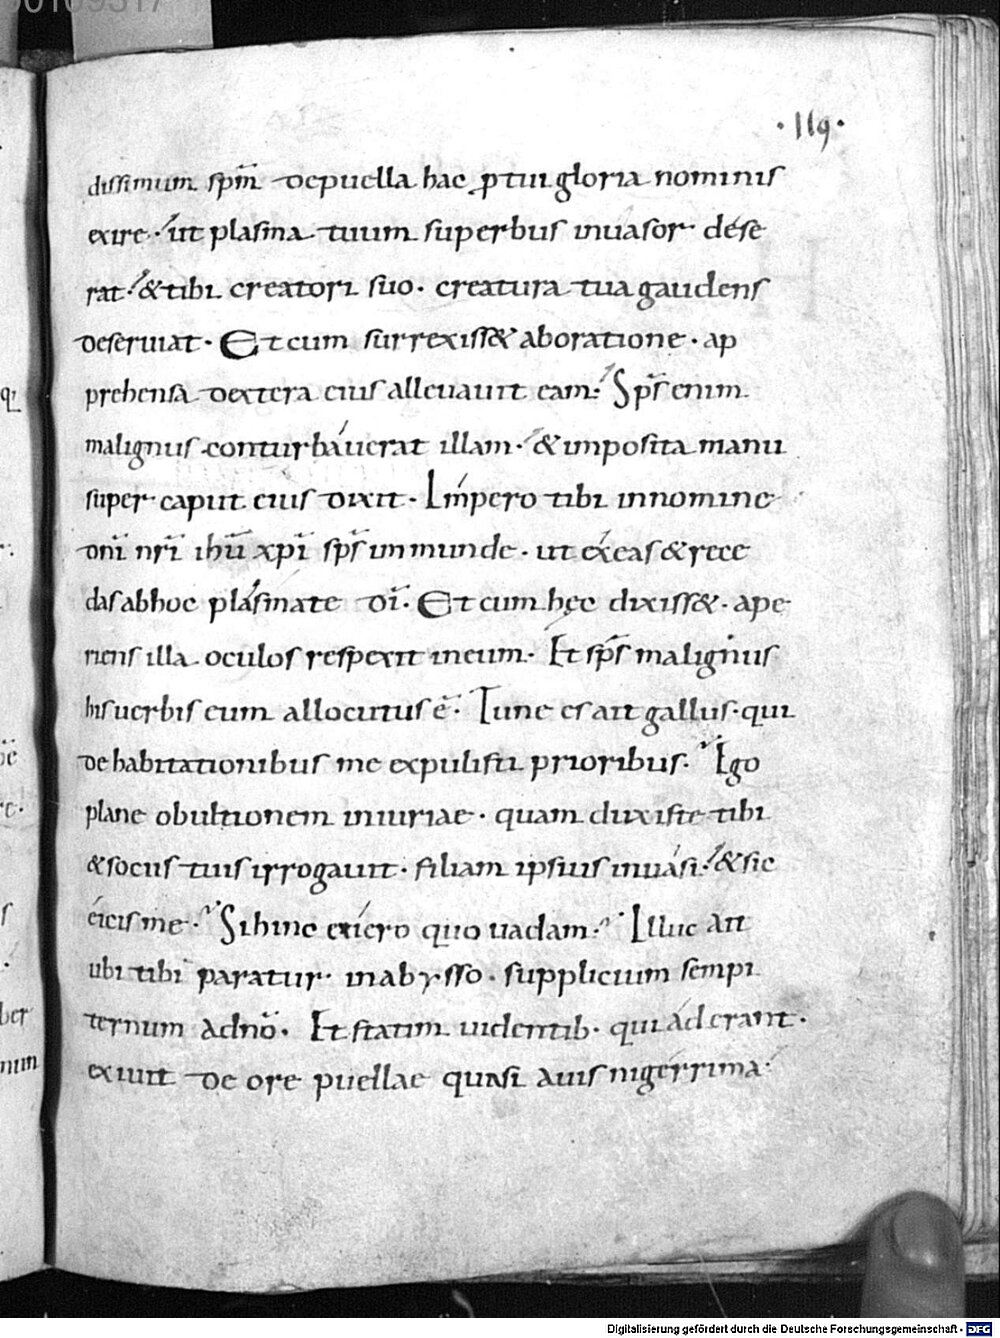 ·119·
dissimum spm̄ depuella hac ꝓ tui gloria nominis
exire· ut plasma tuum superbus inuasor dese
rat· & tibi creatori suo· creatura tua gaudens
deseruiat· Et cum surrexiss& aboratione· ap
prehensa dextera eius alleuauit eam· Sps̄ enim
malignus conturbáuerat illam· & imposita manu
super caput eius dixit· Impero tibi innomine
dnī nrī ihū xpī sps̄ inmunde· ut éxeas & rece
das abhoc plásmate dī· Et cum hęc dixiss&· ape
riens illa oculos respexit ineum· Et sps̄ malignus
his uerbis eum allocutus ē· Tunc es ait gallus· qui
de habitationibus me expulisti prioribus· Ego
plane obultionem iniuriae· quam duxiste tibi
& sociis tuis irrogauit· filiam ipsius inuási· & sic
éicis me· Si hinc exíero quo uadam· Illuc ait
ubi tibi paratur inabysso· supplicium sempi
ternum adnō· Et statim uidentib· qui áderant·
exiuit de ore puellae quasi auis nigérrima·
Digitalisierung gefördert durch die Deutsche Forschungsgemeinschaft - DFG